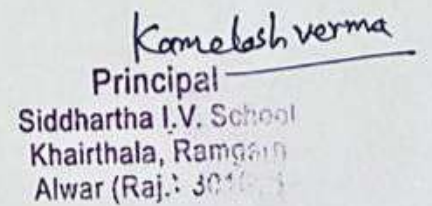 Kamelash verma
Principal
Siddhartha I.V. School
Khairthala, Ramgarh
Alwar (Raj.)